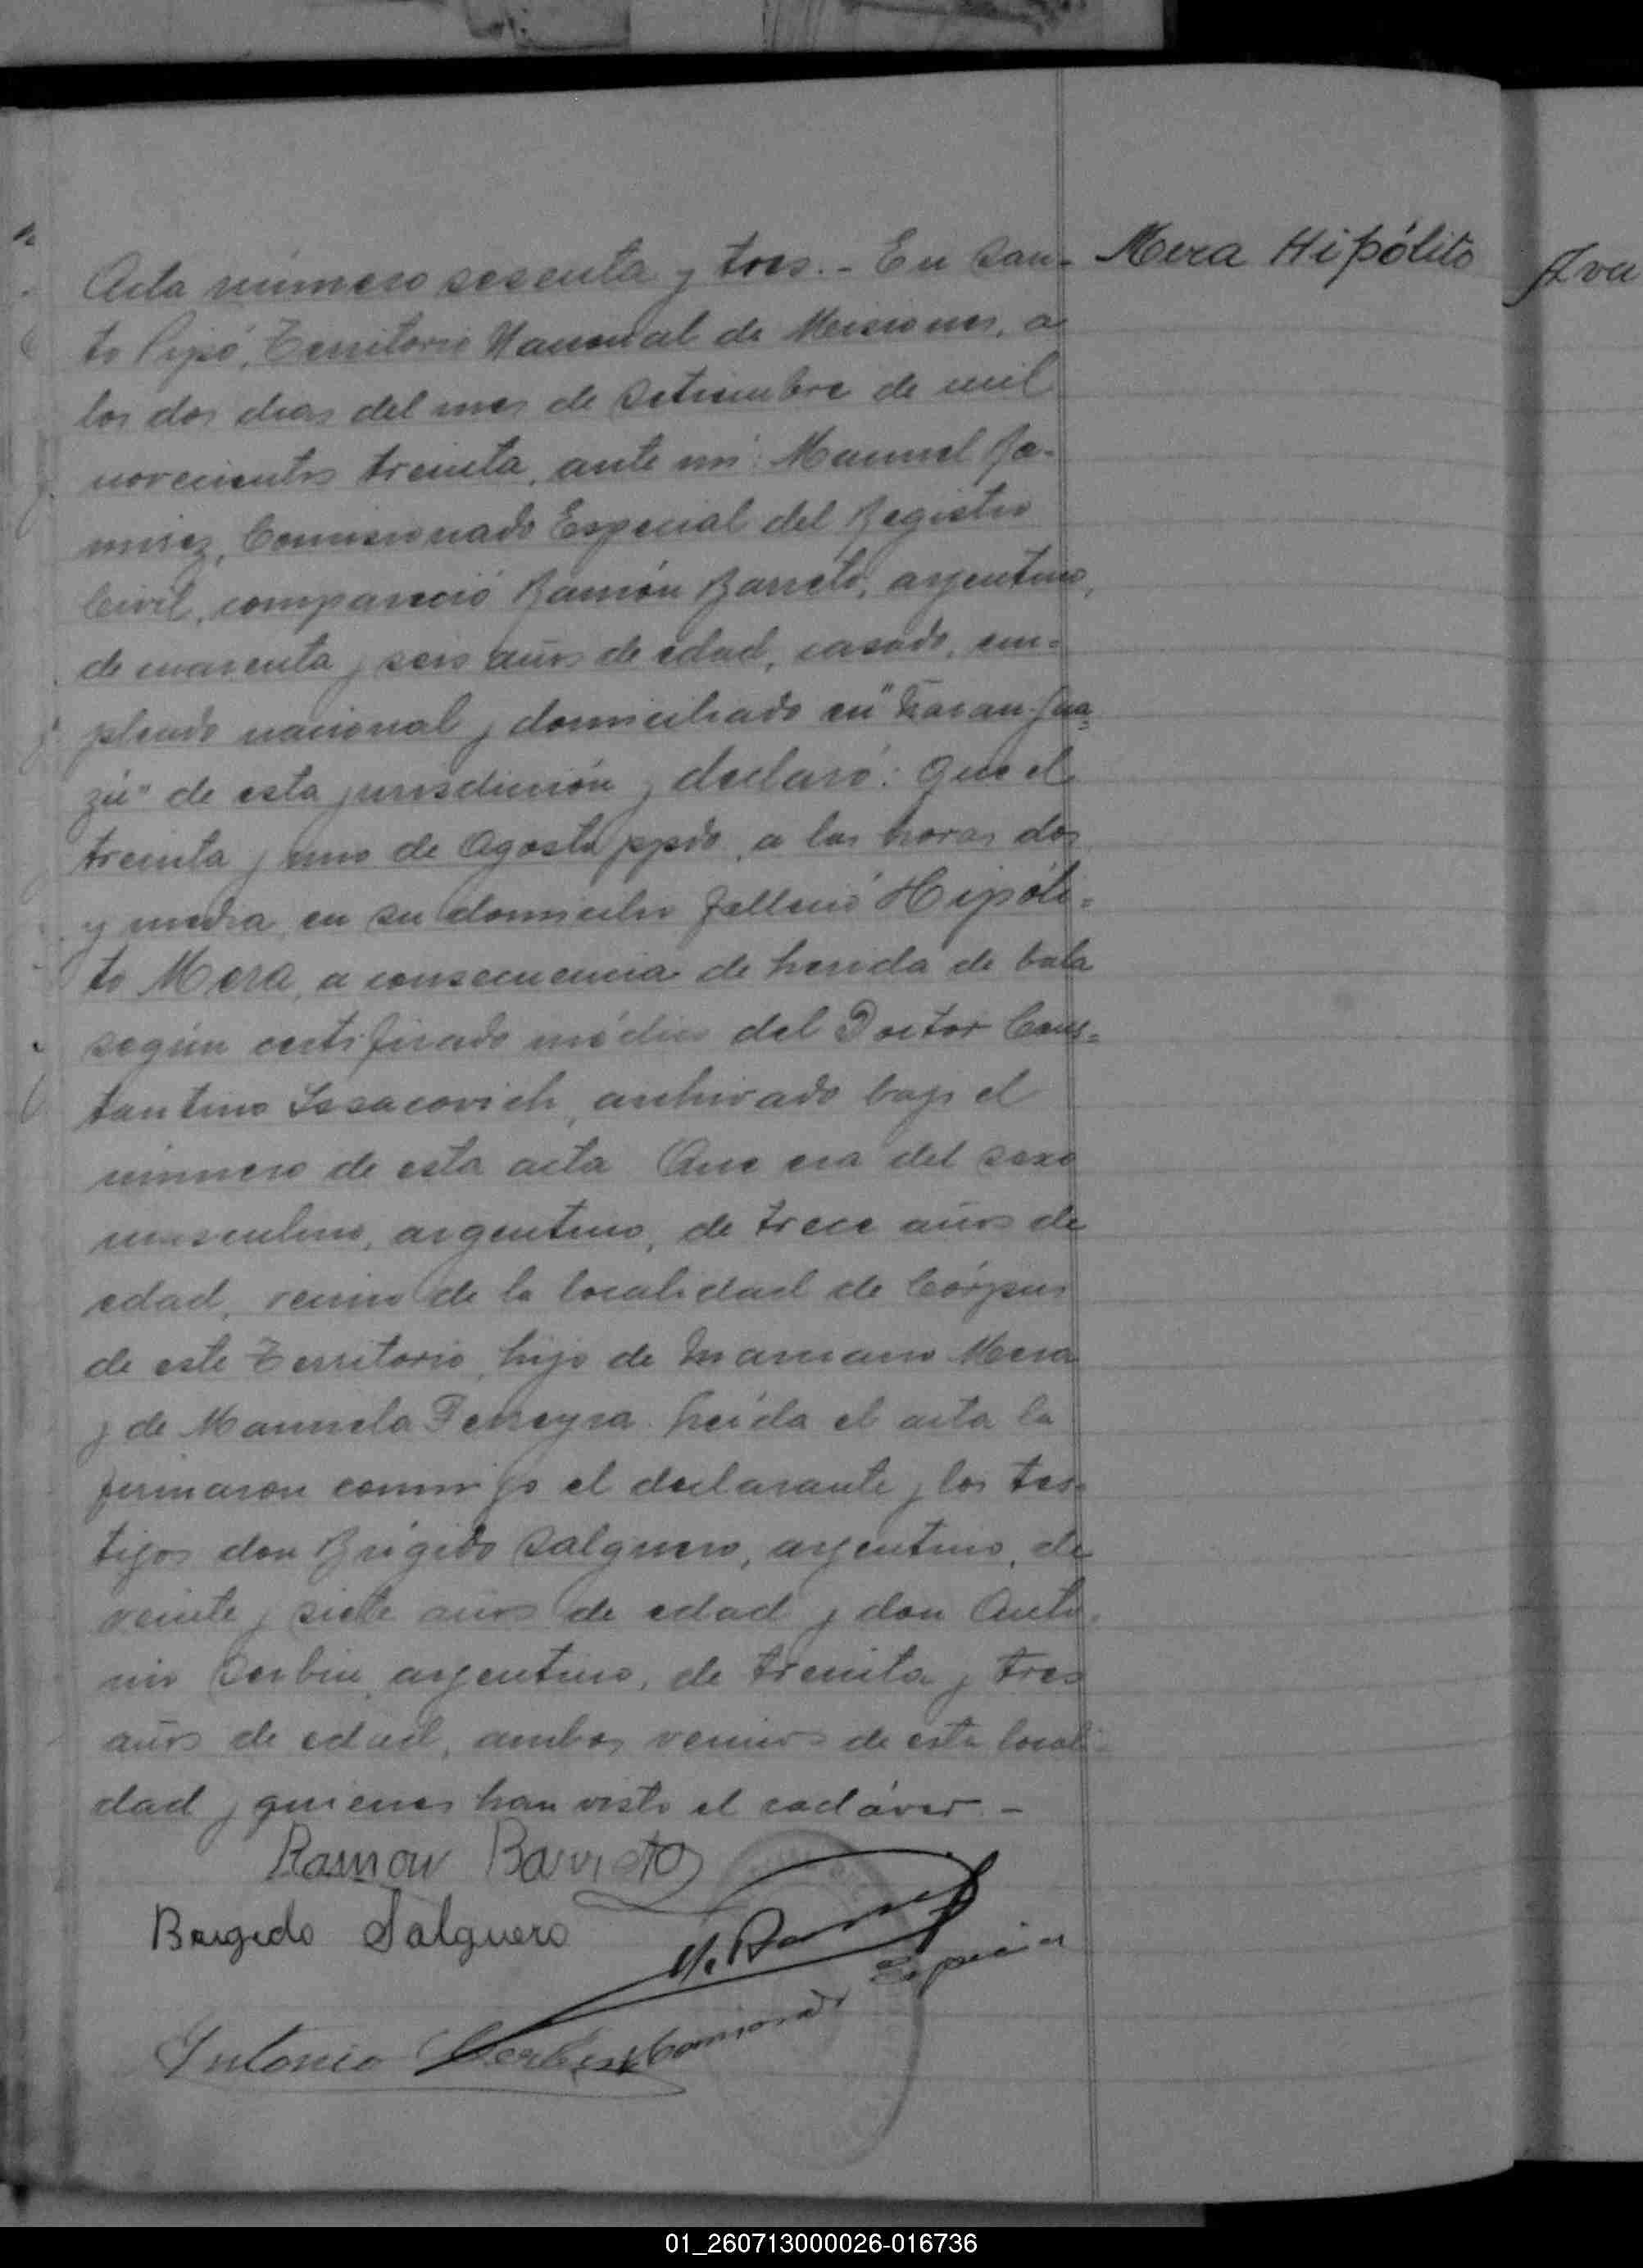 Acta número sesenta y tres. - En San-
to Pipó, Territorio Nacional de Misiones, a
los dos dias del mes de Setiembre de mil
novecientos treinta, ante mi: Manuel Ra-
mirez, Comisionado Especial del Registro
Civil, compareció Ramón Barreto, argentino,
de cuarenta y seis años de edad, casado, em-
pleado nacional y domiciliado en "
zú" de esta jurisdicción y declaró: Que el
treinta y uno de Agosto ppdo, a las horas dos
y media, en su domicilio falleció Hipóli-
to Mera, a consecuencia de herida de bala
según certificado médico del Doctor Cons-
tantino Issacovich, archivado bajo el
número de esta acta. Que era del sexo
masculino, argentino, de trece años de
edad, vecino de la localidad de Córpus
de este Territorio, hijo de Marciano Mera
y de Manuela Pereyra. Leída el acta la
firmaron conmigo el declarante y los tes-
tigos don Brígido Salguero, argentino, de
veinte y siete años de edad y don Anto-
nio argentino, de treinta y tres
años de edad, ambos vecinos de esta locali-
dad y quienes han visto el cadáver. -
Mera Hipólito
Ramon Barreto
Brigido Salguero
M. Ramirez
Comisionado Especial
Antonio
01_260713000026-016736